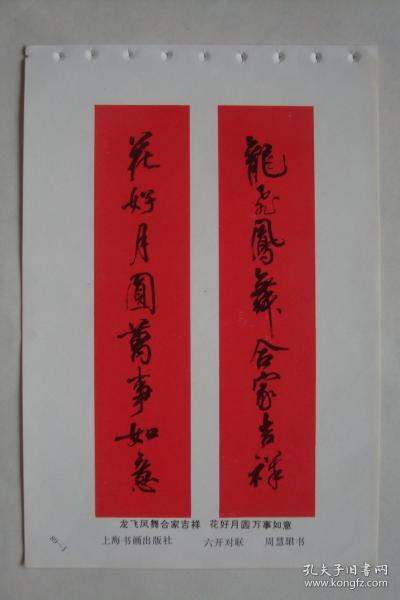 龍飛鳳舞合家吉祥
花好月圓萬事如意
龙飞凤舞合家吉祥 花好月圆万事如意
上海书画出版社 六开对联 周慧珺书
孔夫子旧书网
www.kongfz.com